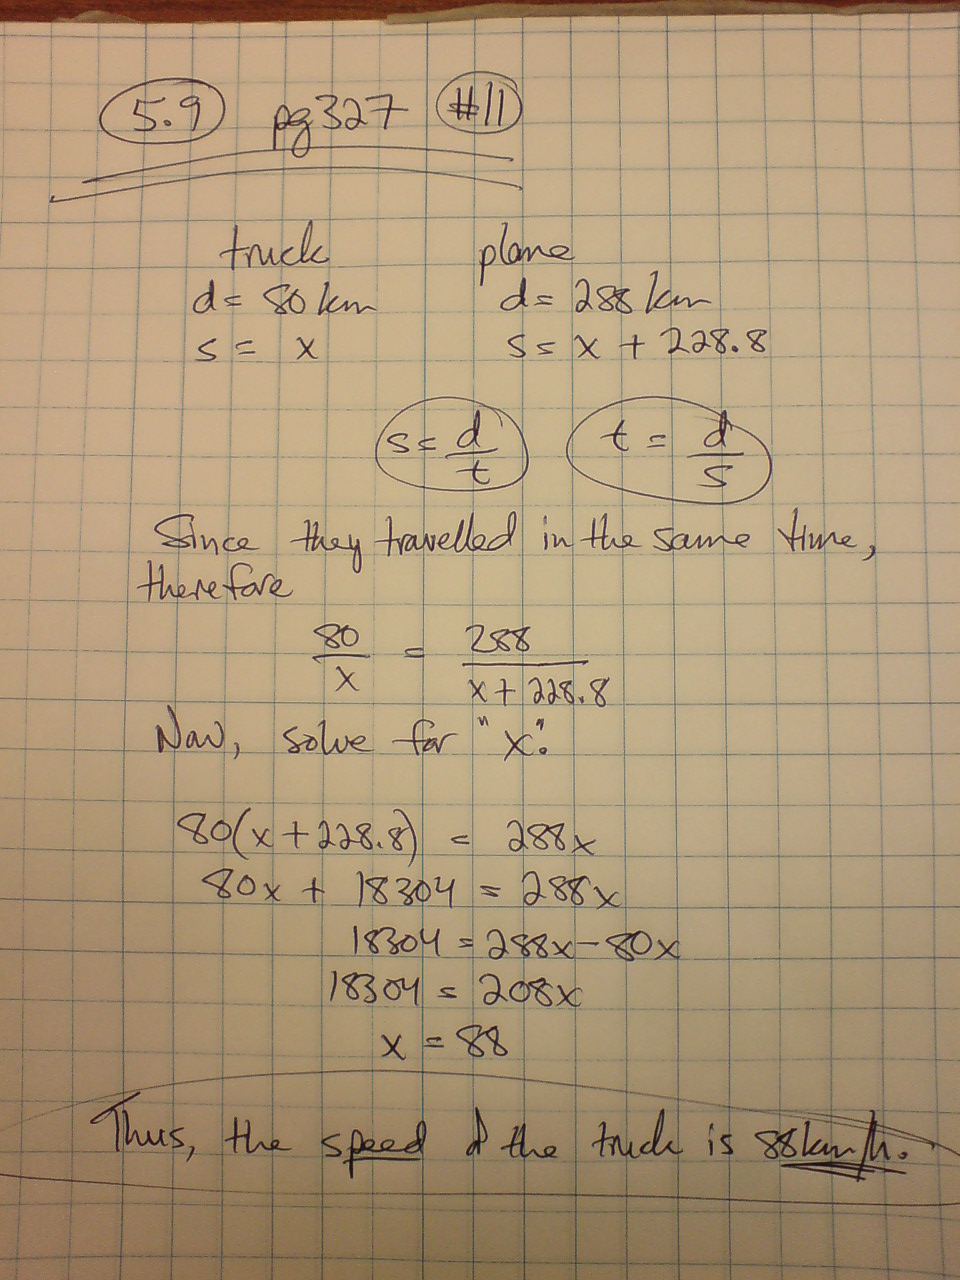 5.9 pg 327 #11
truck plane
d= 80 km d= 288 km
s = x s= x + 228.8
s= d/t t = d/s
Since they travelled in the same time,
therefore
80/x = 288/(x + 228.8)
Now, solve for "x".
80(x + 228.8) = 288x
80x + 18304 = 288x
18304 = 288x - 80x
18304 = 208x
x = 88
Thus, the speed of the truck is 88km/h.